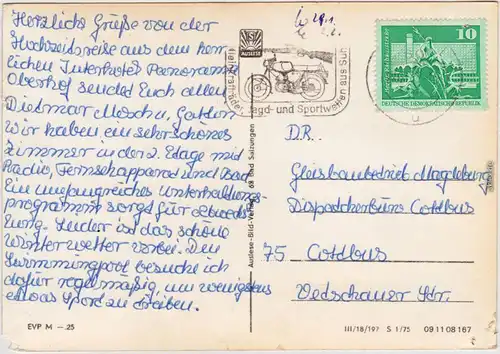 Herzliche Grüße von der
Hochzeitsreise aus dem herr-
lichen Interhotel Panorama
Oberhof sendet Euch allen
Dietmar Mosch u. Gattin
Wir haben ein sehr schönes
Zimmer in der 2. Etage mit
Radio, Fernsehapparat und Bad.
Ein umfangreiches Unterhaltungs-
programm sorgt für
tung. Leider ist das schöne
Winterwetter vorbei. Den
Swimmingpool besuche ich
dafür regelmäßig, um wenigstens
etwas Sport zu treiben.
EVP M —.25
Auslese-Bild-Verlag 69 Bad Salzungen
AUSLESE
Jagd- und Sportwaffen aus Suhl
10
DEUTSCHE DEMOKRATISCHE REPUBLIK
D.R.
Gleisbaubetrieb Magdeburg
Dispatcherbüro Cottbus
75 Cottbus
Vetschauer Str.
III/18/197 S 1/75 09 11 08 167